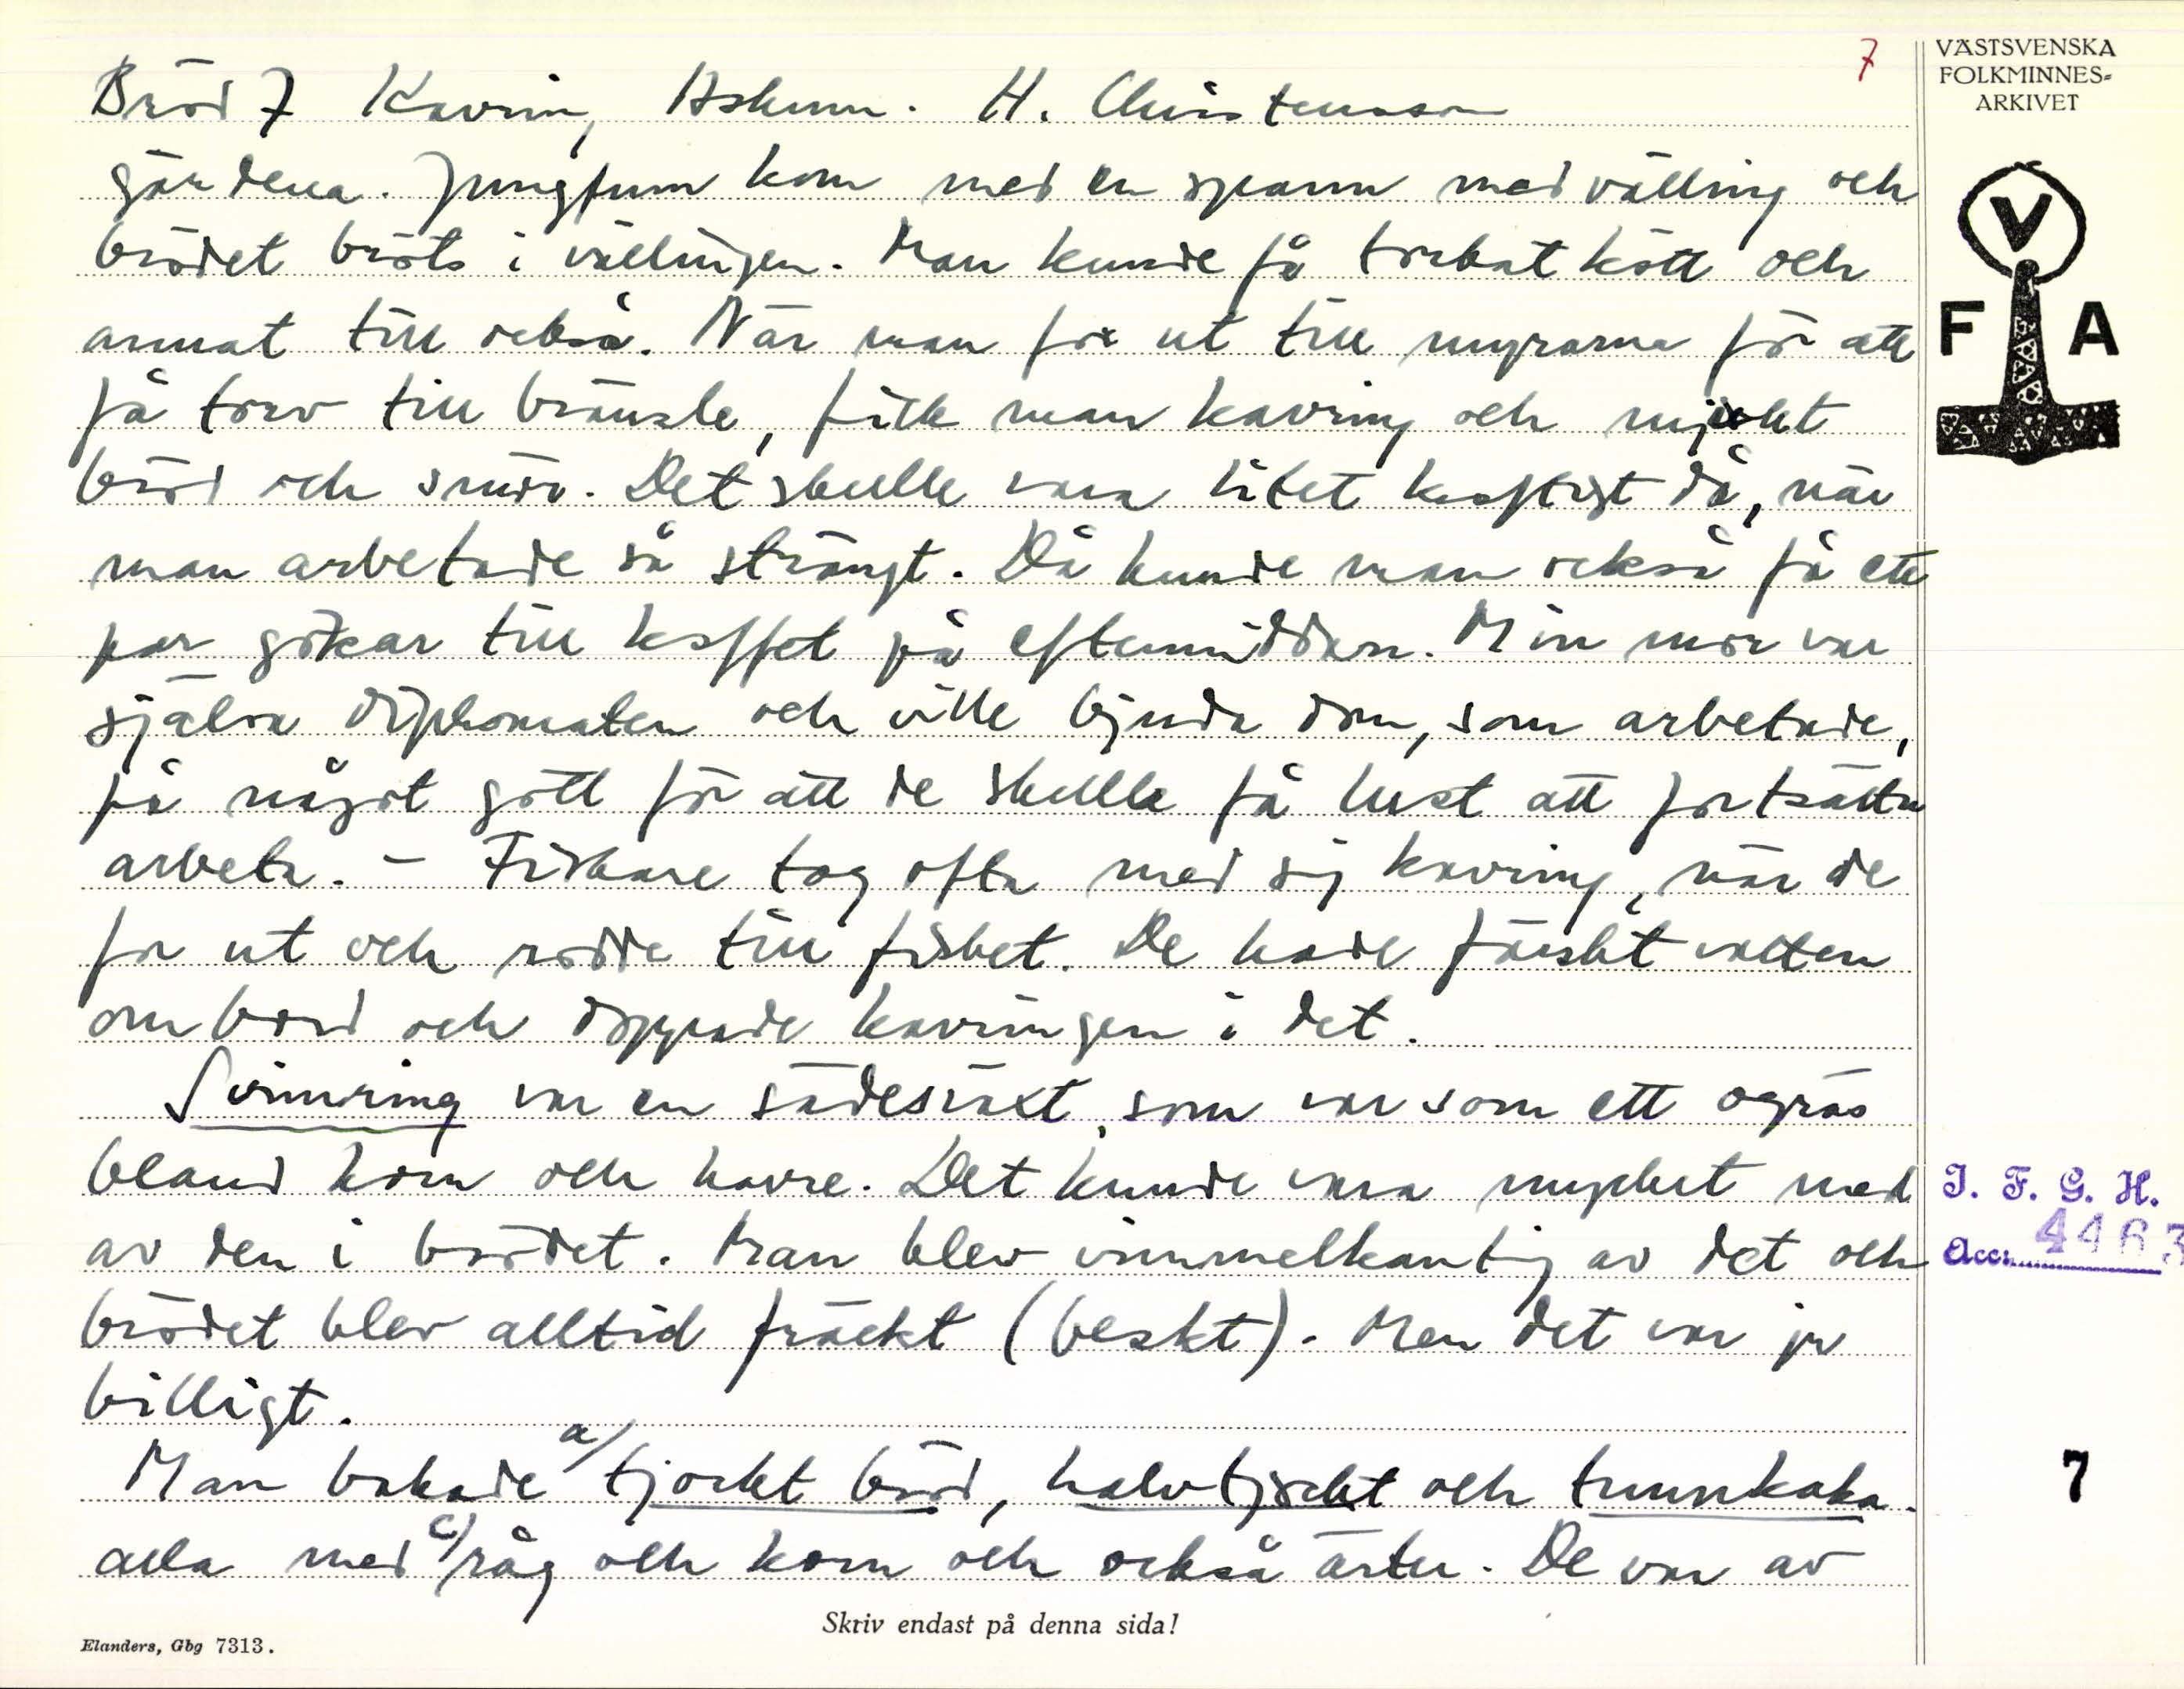 Bröd 7 Kavring, Askum. H. Christensson
7
VÄSTSVENSKA
FOLKMINNES-
ARKIVET
gärdena. Jungfrun kom med en spann med välling och
brödet bröts i vällingen. Man kunde få torkat kött och
annat till också. När man for ut till myrarna för att
få torv till bränsle, fick man kavring och mjukt
bröd och smör. Det skulle vara litet kraftigt då, när
man arbetade så strängt. Då kunde man också få ett
par gökar till kaffet på eftermiddan. Min mor var
själva diplomaten och ville bjuda dom, som arbetade,
på något gott för att de skulle få lust att fortsätta
arbeta. - Fiskare tog ofta med sig kavring, när de
for ut och rodde till fisket. De hade färskt vatten
ombord och doppade kavringen i det.
Svimring var en sädesväxt, som var som ett ogräs
bland korn och havre. Det kunde vara mycket med
av den i brödet. Man blev vimmelkantig av det och
brödet blev alltid fräckt (beskt). Men det var ju
billigt.
Man bakade a/ tjockt bröd, halvtjockt och tunnkaka.
alla med c/ råg och korn och också ärter. De var av
V
F A
I. F. G. H.
Acc. 4463
7
Skriv endast på denna sida!
Elanders, Gbg 7313.